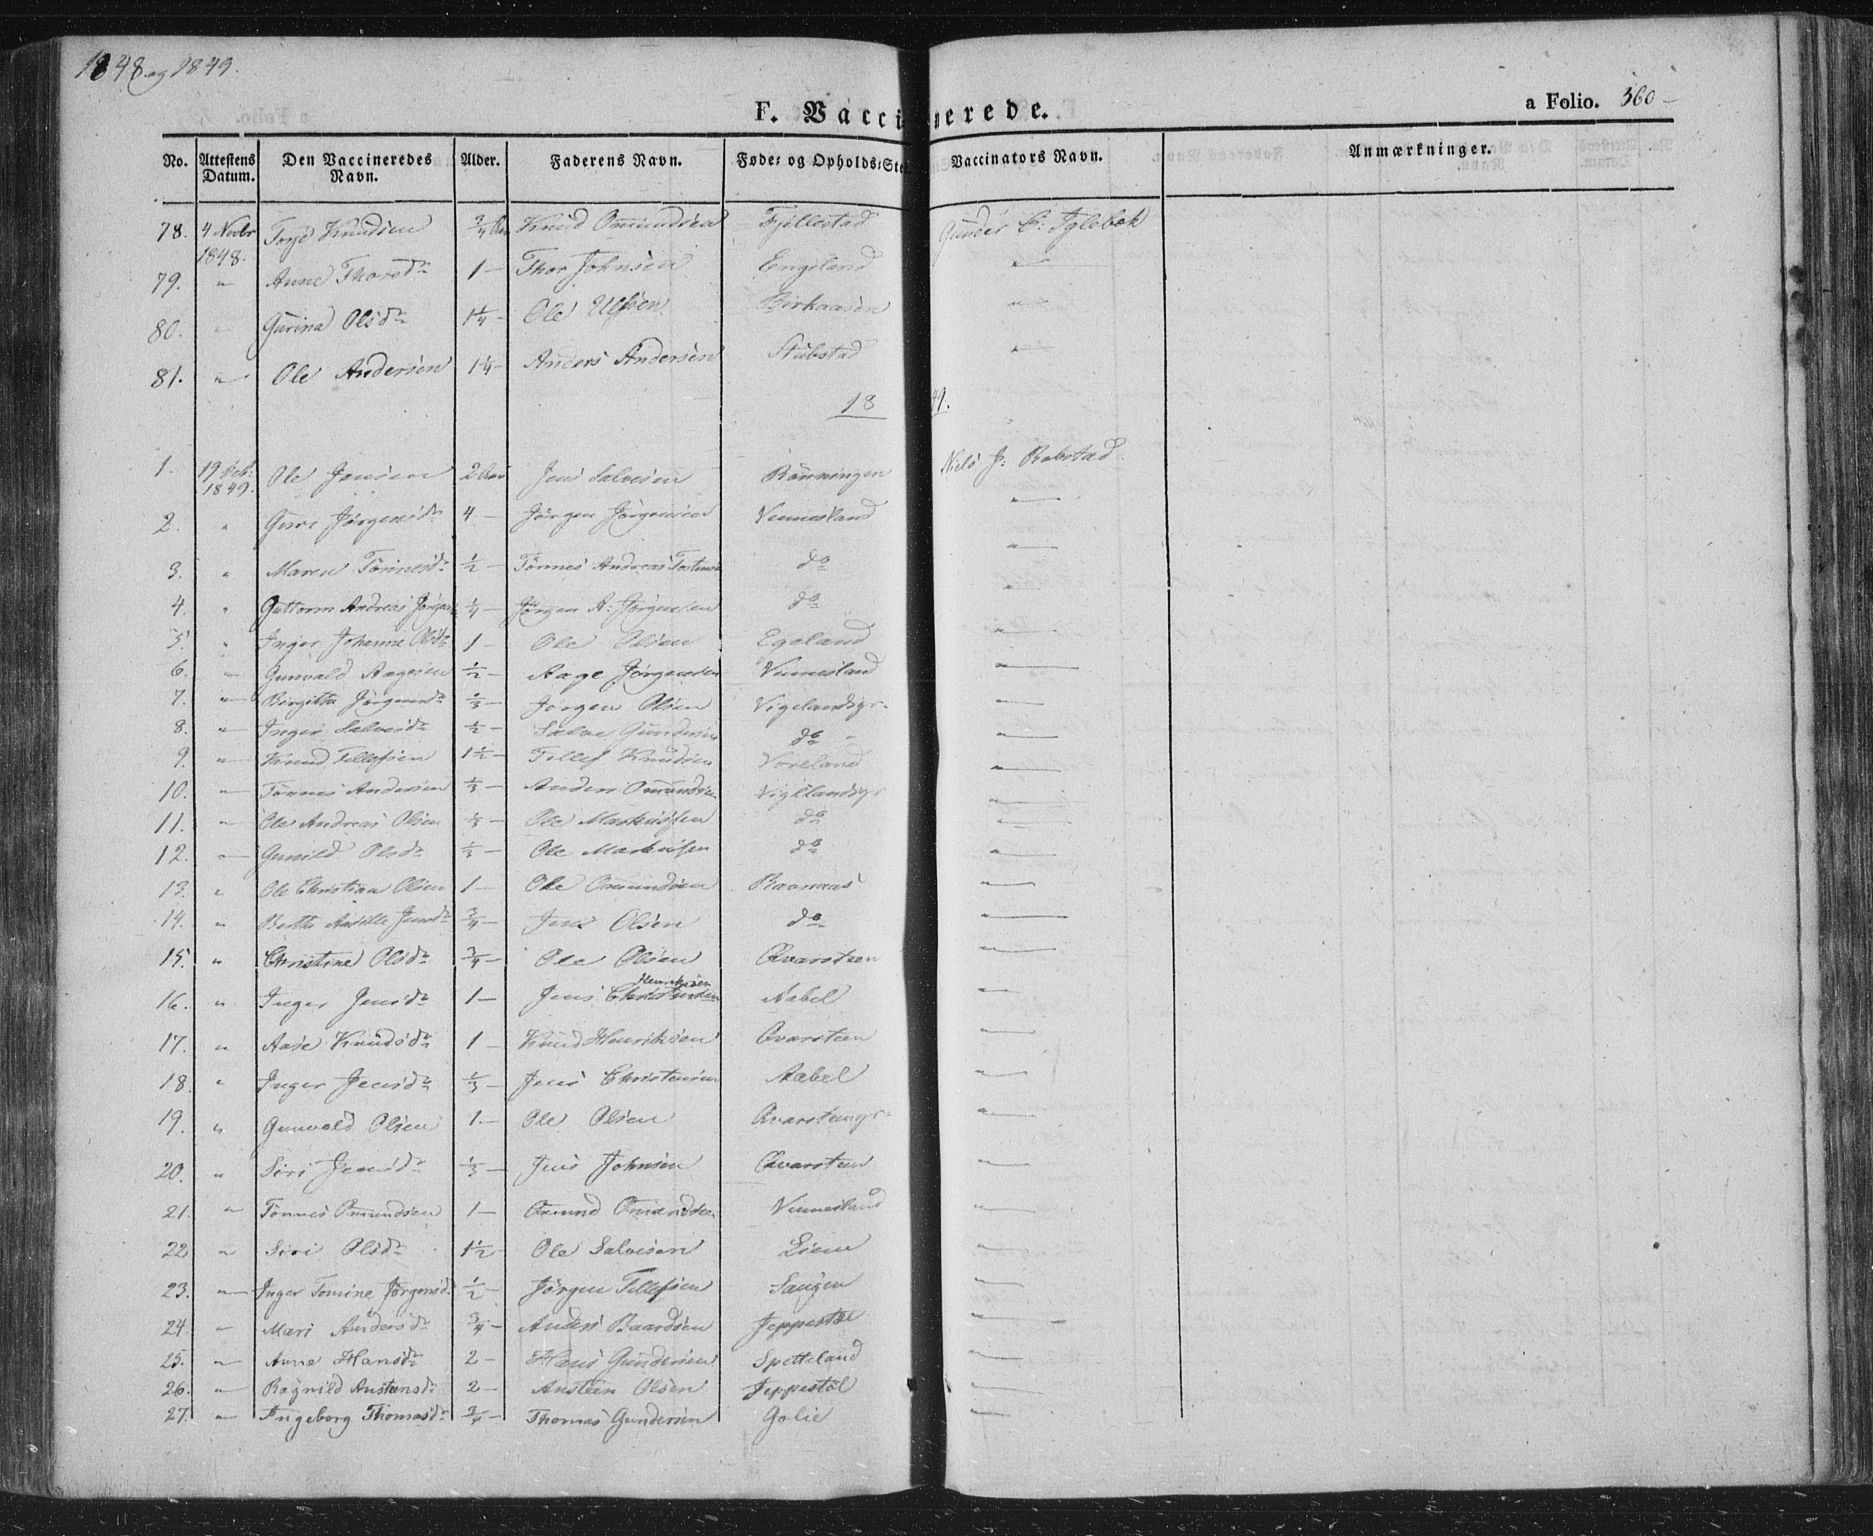 1848 og 1849.
F. Vaccinerede.
a Folio. 360
No. Attestens Datum. Den Vaccineredes Navn. Alder. Faderens Navn. Føde- og Opholds-Sted Vaccinators Navn. Anmærkninger.
78. 4 Novbr 1848. Terje Knudsen 3/4 Aar Knud Omundsen Fjellestad Gunder C: Iglebæk
79. " Anne Thorsdr 1 — Thor Johnsen Engeland "
80. " Gurina Olsdr 1 1/4 — Ole Ulfsen Birkaasen "
81. " Ole Andersen 1 1/4 — Anders Andersen Stubstad "
1849.
1. 19 Feb: 1849. Ole Jensen 2 Aar Jens Salvesen Rønningen Niels J: Robstad
2. " Guri Jørgensdr 4 — Jørgen Jørgensen Vennesland "
3. " Maren Tønnesdr 1/2 — Tønnes Andreas Tostensen do "
4. " Guttorm Andreas Jørgens 1/4 — Jørgen A: Jørgensen do "
5. " Inger Johanne Olsdr 1 — Ole Olsen Egeland "
6. " Gunvald Aagesen 1/2 — Aage Jørgensen Vennesland "
7. " Birgitte Jørgensdr 1/3 — Jørgen Olsen Vigelandsgr. "
8. " Inger Salvesdr 1/2 — Salve Gundersen do "
9. " Knud Tellefsen 1 1/2 — Tellef Knudsen Voreland "
10. " Tønnes Andersen 1/3 — Anders Omundsen Vigelandsgr "
11. " Ole Andreas Olsen 1/3 — Ole Markussen do "
12. " Gunild Olsdr 1/3 — Ole Markusen do "
13. " Ole Christian Olsen 1 — Ole Omundsen Ravnaas "
14. " Berthe Jensdr 3/4 — Jens Olsen do "
15. " Christine Olsdr 3/4 — Ole Olsen Qvarsteen "
16. " Inger Jensdr 1 — Jens Christensen Henriksen Aabel "
17. " Aase Knudsdr 1 — Knud Henriksen Qvarsteen "
18. " Inger Jensdr 1/3 — Jens Christensen Aabel "
19. " Gunvald Olsen 1 — Ole Olsen Qvarstensgr. "
20. " Siri Jensdr 1/3 — Jens Johnsen Qvarsteen "
21. " Tønnes Omundsen 1 — Omund Omundsen Vennesland "
22. " Siri Olsdr 1 1/2 — Ole Salvesen Liene "
23. " Inger Tomine Jørgensd. 1/2 — Jørgen Tellefsen Saugen "
24. " Mari Andersdr 3/4 — Anders Baardsen Jeppestøl "
25. " Anne Hansdr 2 — Hans Gundersen Spetteland "
26. " Ragnild Austensdr 2 — Austeen Olsen Jeppestøl "
27. " Ingeborg Thomasdr 3/4 — Thomas Gundersen Golie "